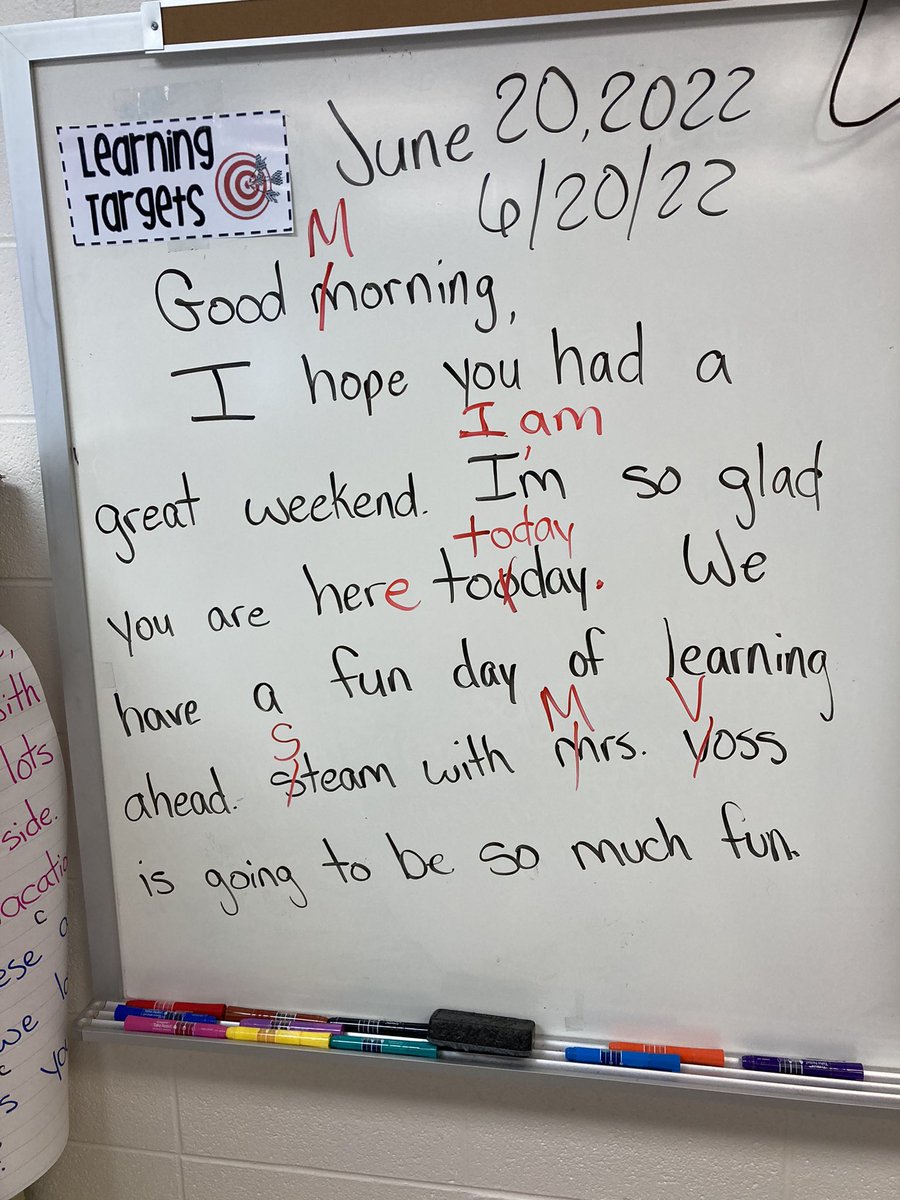 Learning
Targets
June 20, 2022
6/20/22
M
Good morning,
I hope you had a
I am
great weekend. I'm so glad
today
you are here tooday. We
have a fun day of learning
S M V
ahead. steam with mrs. voss
is going to be so much fun.
with
lots
side.
c
we